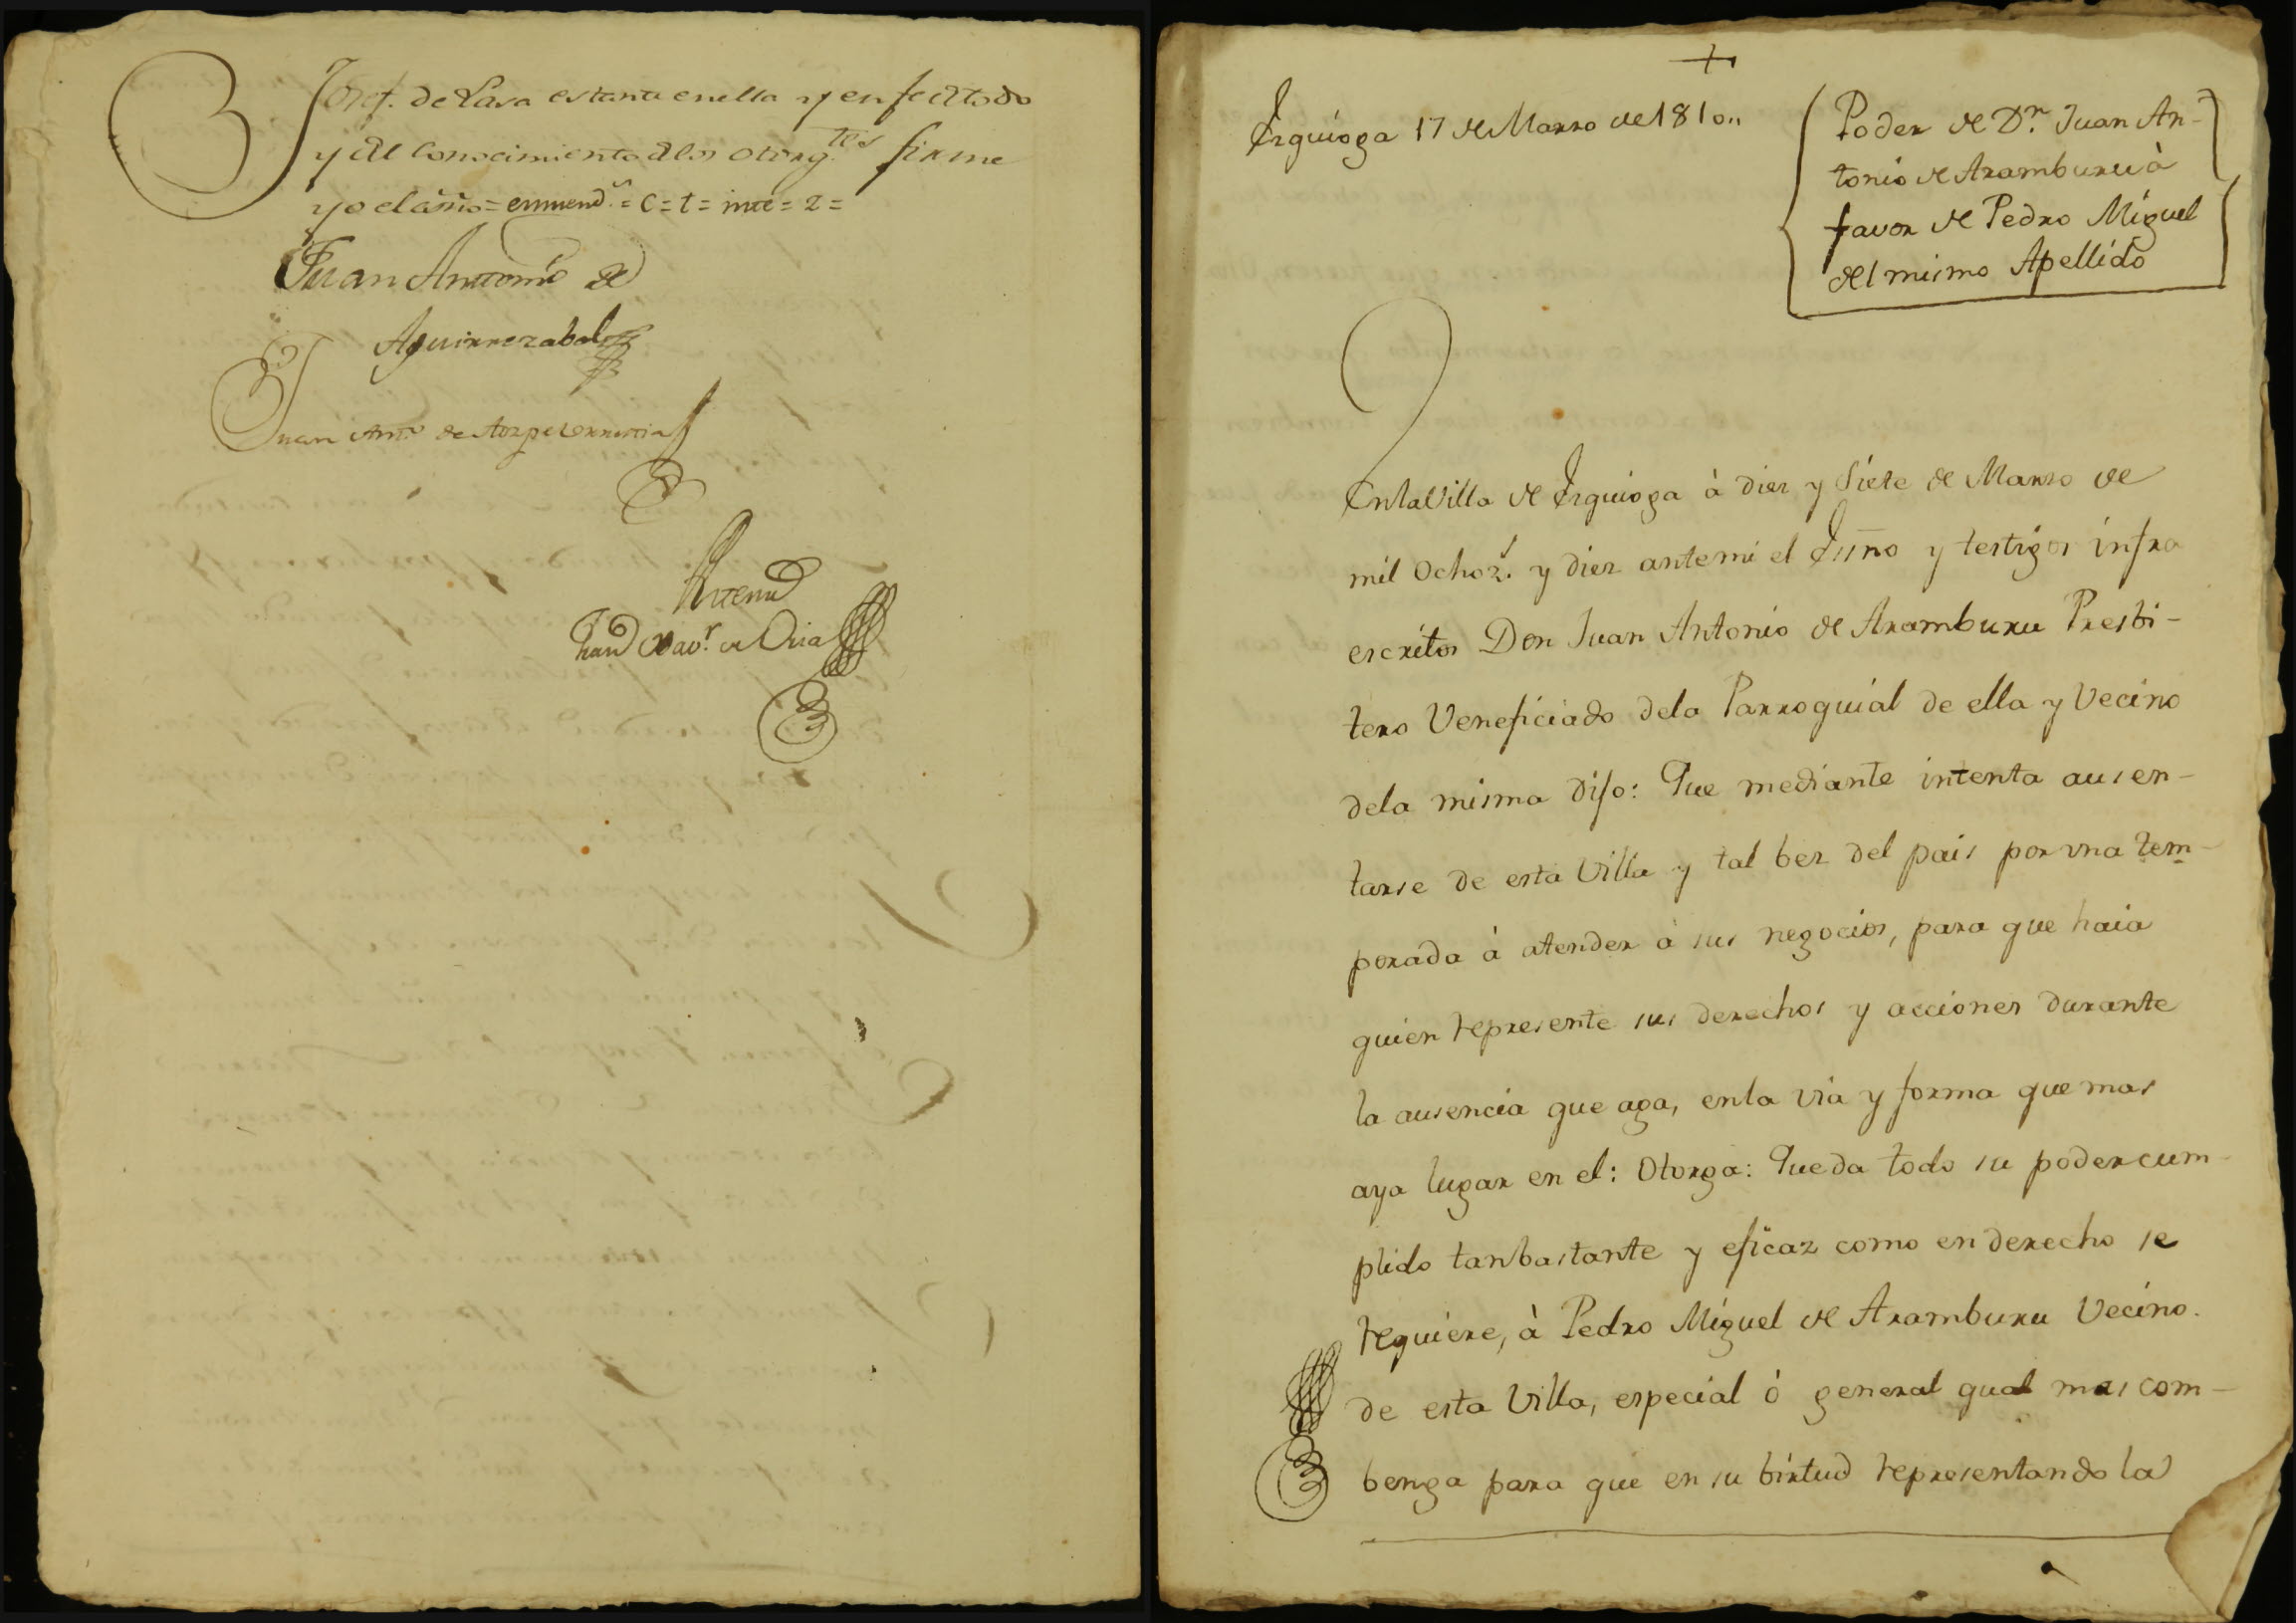 Josef. de Lasa estante en ella y en fe de todo
y del conocimiento de los otorg.tes firme
yo el ssno = enmend.s = c = t = inte = z =
Juan Antonio de
Aguirrezabal
Juan Ant.o de Aozpeteurrutia
Ante mi
Fran.co Xav.r de Oria
+
Ezquioga 17 de Marzo de 1810..
Poder de D.n Juan An-
tonio de Aramburu à
favor de Pedro Miguel
del mismo Apellido
En la Villa de Ezquioga à diez y Siete de Marzo de
mil Ochoz.s y diez ante mi el Essno y testigos infra
escritos Don Juan Antonio de Aramburu Presbi-
tero Veneficiado dela Parroquial de ella y Vecino
dela misma dijo: Que mediante intenta ausen-
tarse de esta Villa y tal bez del pais por una tem-
porada à atender à sus negocios, para que haia
quien represente sus derechos y acciones durante
la ausencia que aga, en la via y forma que mas
aya lugar en el: Otorga: Que da todo su poder cum-
plido tan bastante y eficaz como en derecho se
requiere, à Pedro Miguel de Aramburu Vecino.
de esta Villa, especial ò general qual mas com-
benga para que en su birtud representando la